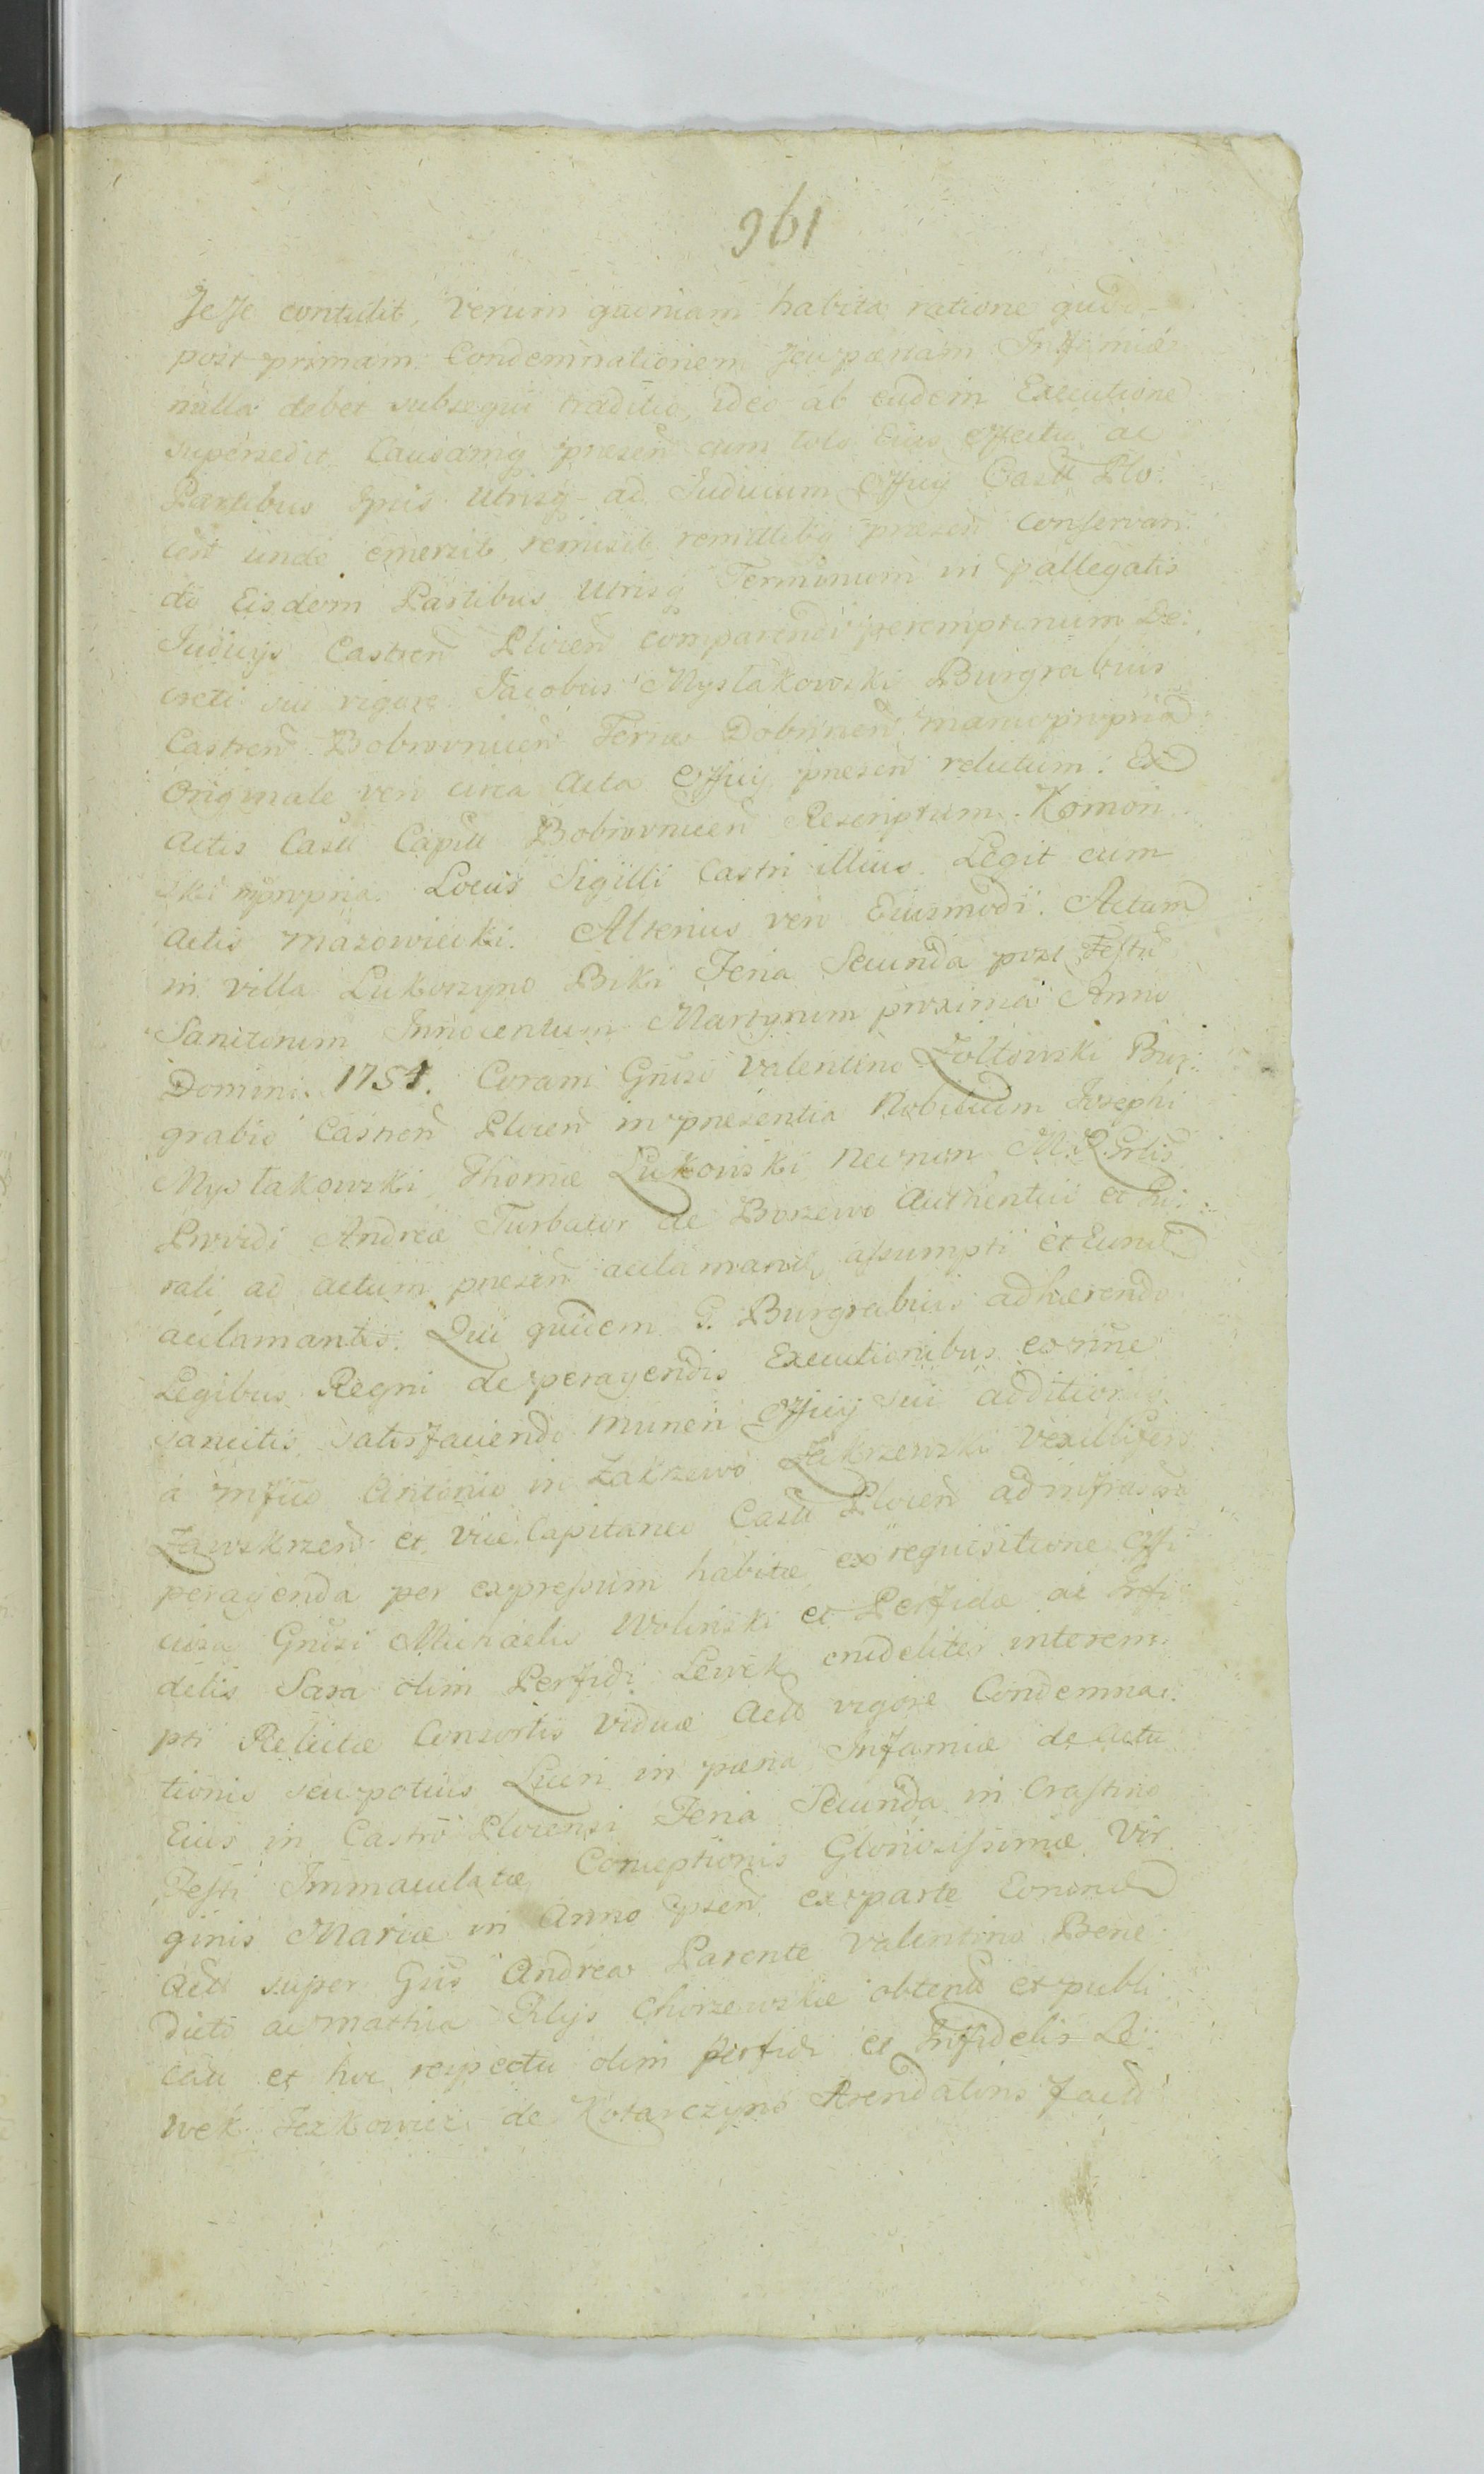 961
Sese contulit, Verum quoniam habita ratione quod
post primam Condemnationem seu pænam Infamiæ
nulla debet subsequi traditio, ideo ab eadem Executione
supersedit Causamq presen cum toto Eius effectu ac
Partibus Ipsis Utrisq ad Judicium Officij Castr Plo:
cen unde emersit remisit remittitq presen conservan
do Eisdem Partibus Utrisq Terminum in pallegatis
Judicijs Castren Plocen comparendi peremptorium De:
creti sui vigore Jacobus Mystakowski Burgrabius
Castren Bobrovnicen Terræ Dobrinen manu propria
Originale vero circa Acta Officij presen relictum: Ex
Actis Castr Capit Bobrovnicen Rescriptum. Komor
ski mpropria. Locus Sigilli Castri illius. Legit cum
Actis Mazowiecki. Alterius vero Eiusmodi. Actum
in villa Lukoszyno Biki Feria Secunda post Festu
Sanctorum Innocentum Martyrum proxima Anno
Domini 1754. Coram Gnoso Valentino Zołtowski Bur:
grabio Castren Plocen in presentia Nobilium Josephi
Mystakowski Thomæ Lukowski Necnon M. R. Grlis
Providi Andreæ Turbator de Borzewo Authentici et Ju:
rati ad actum presen acclamandu assumpti et Eund
acclamantis. Qui quidem G. Burgrabius adhærendo
Legibus Regni de peragendis Executionibus eorune
sancitis, satisfaciendo muneri Officij sui additionis
a Mfico Antonio in Zakrzewo Zakrzewski Vexillifero
Zawskrzen et Vice Capitaneo Castr Plocen ad infrascr
peragenda per expressum habitæ ex requisitione Offi
ciosa Gnosi Michaelis Wolinski et Perfidæ ac Infi
delis Sara olim Perfidi Lewek crudeliter interem
pti Relictæ Consortis Viduæ Act vigore Condemna:
tionis seu potius Lucri in pæna Infamiæ de actu
Eius in Castro Plocensi Feria Secunda in Crastino
Festi Immaculatæ Conceptionis Gloriosissimæ Vir
ginis Mariæ in Anno psen ex parte Eorund
Act super Gsis Andrea Parente Valentino Bene
dicto ac Mathia Filijs Chorzewskie obtent et publi
cat et hoc respectu olim perfidi et Infidelis Le:
wek Jezkowicz de Kotarczyno Arendatoris fact